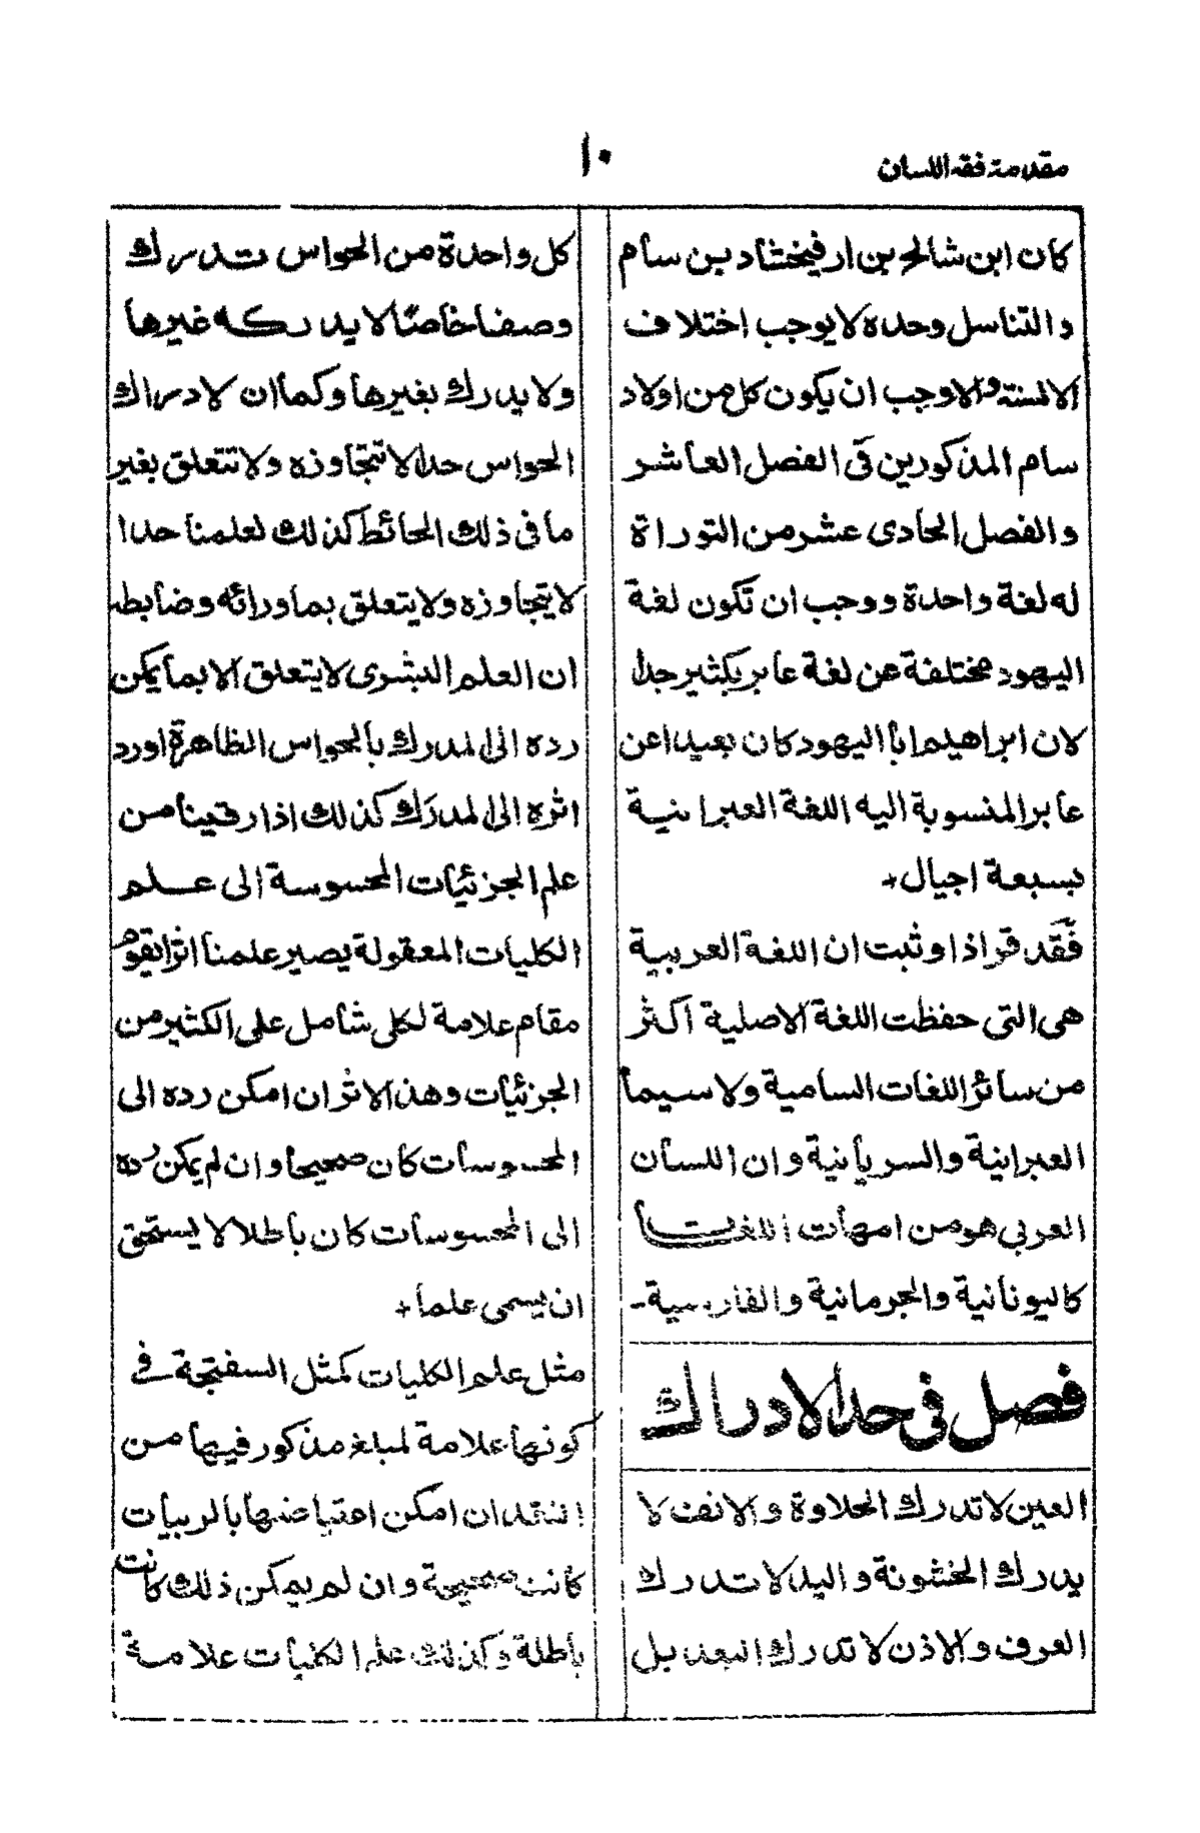 مقدمة فقه اللسان
١٠
كان ابن شالح بن ارفيخشاد بن سام
والتناسل وحده لا يوجب اختلاف
الالسنة والا وجب ان يكون كل من اولاد
سام المذكورين في الفصل العاشر
والفصل الحادى عشر من التوراة
له لغة واحدة ووجب ان تكون لغة
اليهود مختلفة عن لغة عابر بكثير جدا
لان ابراهيم ابا اليهود كان بعيدا عن
عابر المنسوبة اليه اللغة العبرانية
بسبعة اجيال+
فقد قر اذا وثبت ان اللغة العربية
هى التى حفظت اللغة الاصلية اكثر
من سائر اللغات السامية ولا سيما
العبرانية والسريانية وان اللسان
العربي هو من امهات اللغات
كاليونانية والجرمانية والفارسية-
فصل في حد الادراك
العين لا تدرك الحلاوة والانف لا
يدرك الخشونة واليد لا تدرك
العرف والاذن لا تدرك البعد بل
كل واحدة من الحواس تدرك
وصفا خاصا لا يدركه غيرها
ولا يدرك بغيرها وكما ان لادراك
الحواس حدا لا تتجاوزه ولا تتعلق بغير
ما في ذلك الحائط كذلك لعلمنا حدا
لا يتجاوزه ولا يتعلق بما ورائه وضابطه
ان العلم البشرى لا يتعلق الا بما يمكن
رده الى المدرك بالحواس الظاهرة او رد
اثره الى المدرك كذلك اذا رقينا من
علم الجزئيات المحسوسة الى علم
الكليات المعقولة يصير علمنا اثرا يقوم
مقام علامة لكلى شامل على الكثير من
الجزئيات وهذ الاثر ان امكن رده الى
المحسوسات كان صحيحا وان لم يمكن رده
الى المحسوسات كان باطلا لا يستحق
ان يسمى علما+
مثل علم الكليات كمثل السفتجة في
كونها علامة لمبلغ مذكور فيها من
النقد ان امكن اعتياضها بالربيات
كانت صحيحة وان لم يمكن ذلك كانت
باطلة وكذلك علم الكليات علامة